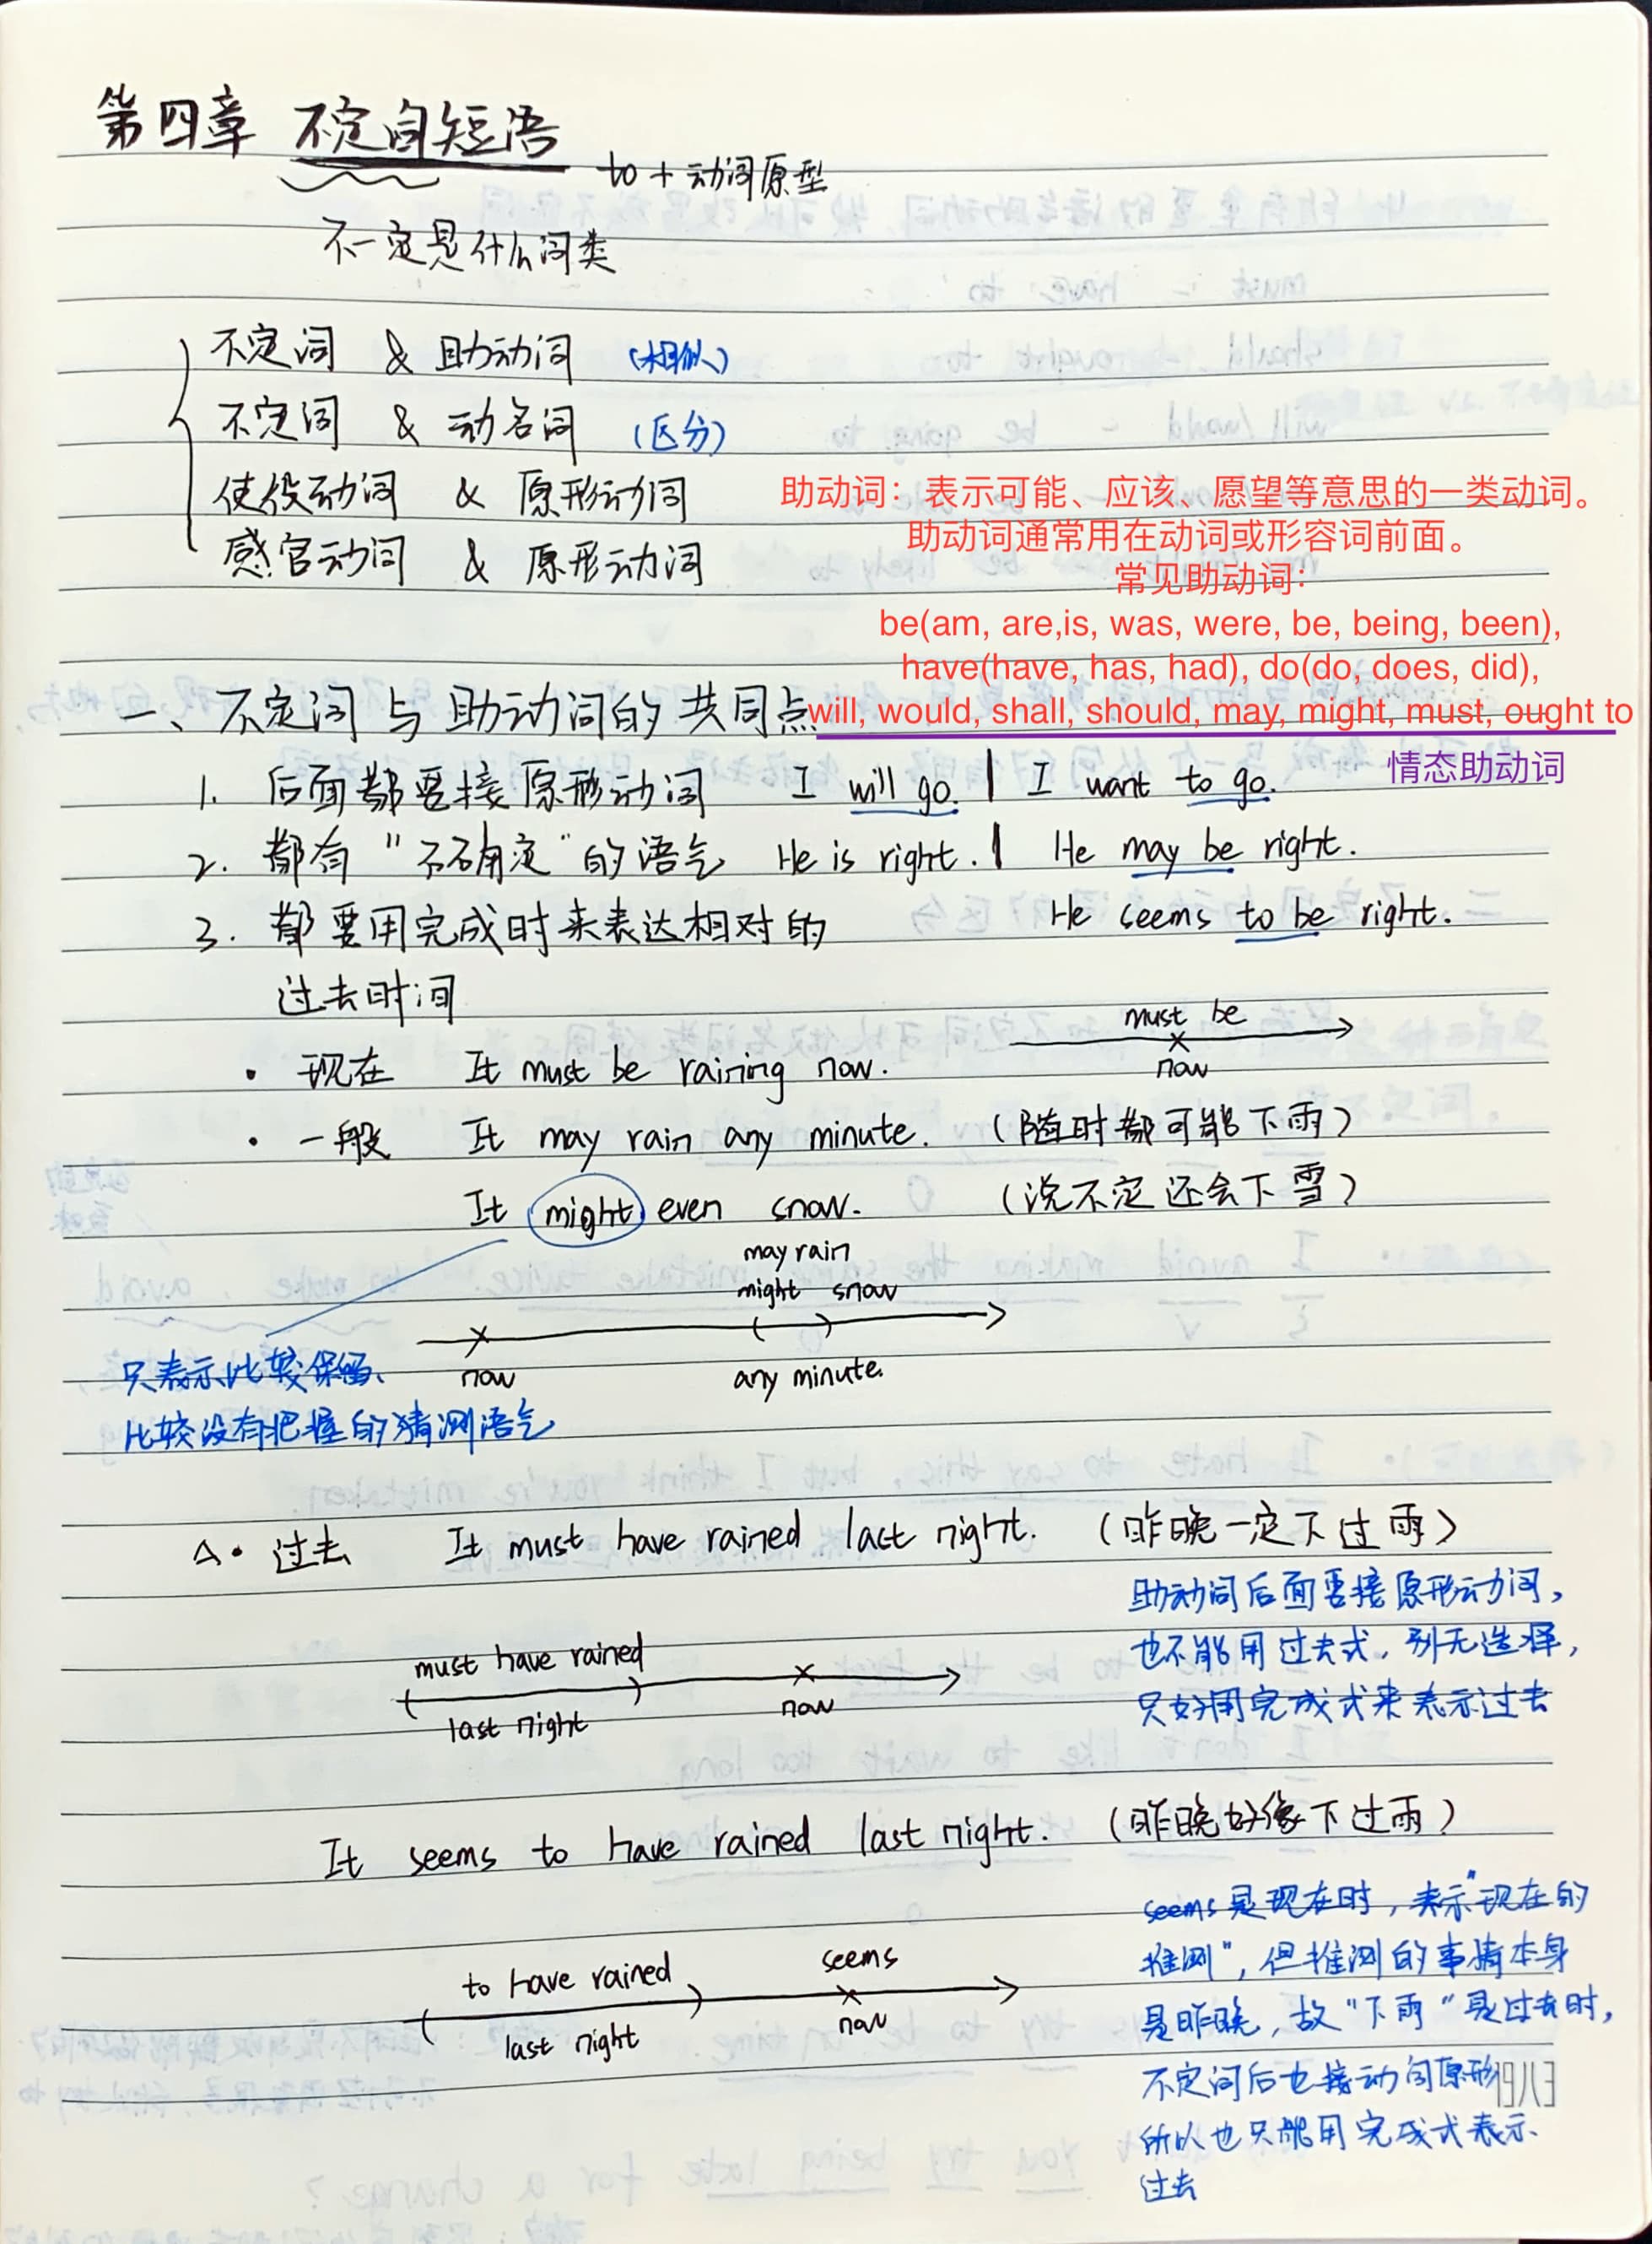 第四章 不定词短语
to + 动词原型
不一定是什么词类
不定词 & 助动词 (相似)
不定词 & 动名词 (区分)
使役动词 & 原形动词
感官动词 & 原形动词
助动词：表示可能、应该、愿望等意思的一类动词。
助动词通常用在动词或形容词前面。
常见助动词：
be(am, are,is, was, were, be, being, been),
have(have, has, had), do(do, does, did),
will, would, shall, should, may, might, must, ought to
情态助动词
一、不定词与助动词的共同点
1. 后面都要接原形动词 I will go. | I want to go.
2. 都有"不确定"的语气 He is right. | He may be right.
3. 都要用完成时来表达相对的 He seems to be right.
过去时间
must be
now
· 现在 It must be raining now.
· 一般 It may rain any minute. (随时都可能下雨)
It might even snow. (说不定还会下雪)
may rain
might snow
now any minute.
只表示比较保留、
比较没有把握的猜测语气
△· 过去 It must have rained last night. (昨晚一定下过雨)
助动词后面要接原形动词，
也不能用过去式，别无选择，
只好用完成式来表示过去
must have rained
last night now
It seems to have rained last night. (昨晚好像下过雨)
seems是现在时，表示"现在的
推测"，但推测的事情本身
是昨晚，故"下雨"是过去时，
不定词后也接动词原形
所以也只能用完成式表示
过去
to have rained seems
last night now